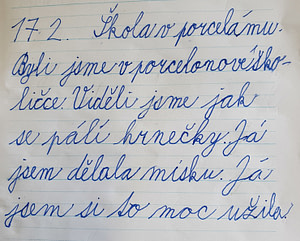 17. 2. Škola v porcelámu.
Byli jsme v porcelonovéško-
ličce. Viděli jsme jak
se pálí hrnečky. Já
jsem dělala misku. Já
jsem si to moc užila.